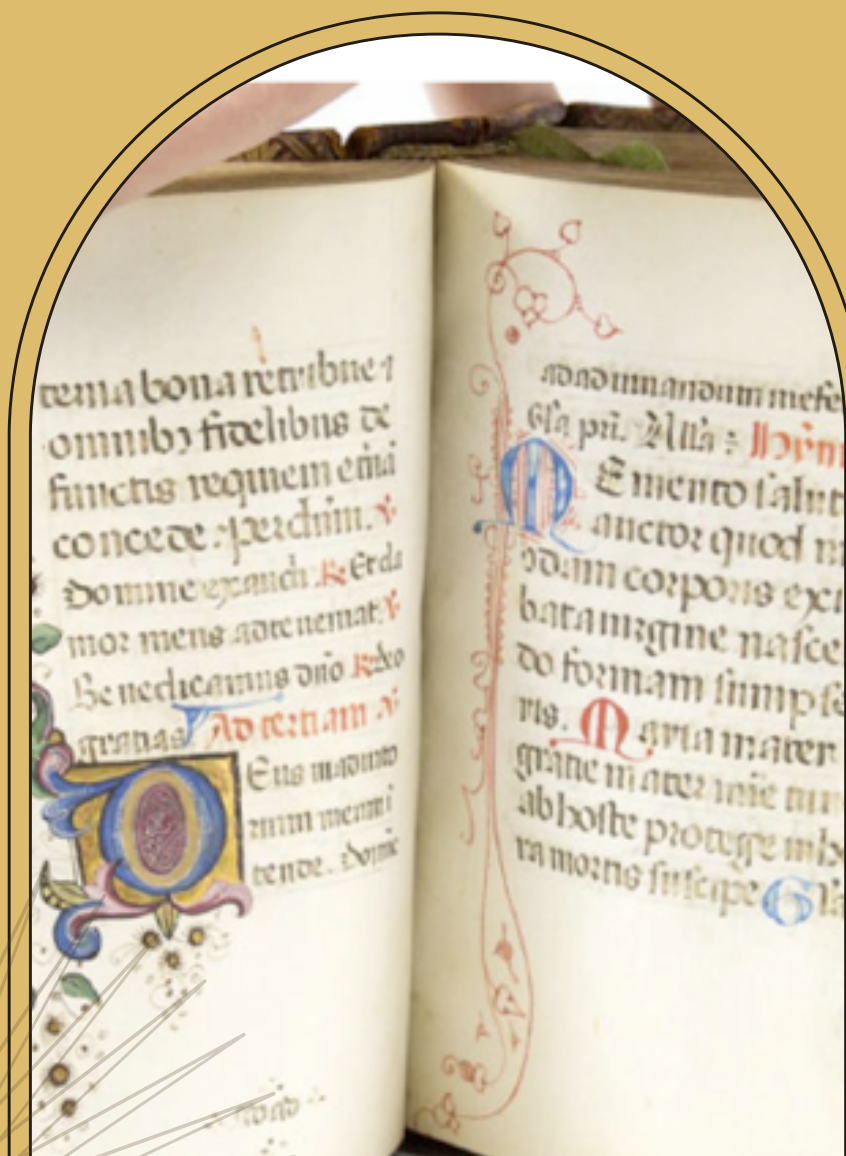 terna bona retribue ⁊
omnibꝫ fidelibus de
functis requiem et̃nã
concede. per dñm. ℣.
Domine exaudi ℟. Et cla
mor meus ad te veniat. ℣.
Benedicamus dño ℟. deo
gratias Ad tertiam ℣.
Eus in adiuto
rium meum i
tende. Domĩe
ad adiuuandum me fe
Gl̃a pr̃i. All̃a : hym
Memento salut
auctor quod n
odam corporis ex i
bata uirgine nasce
do formam sumpse
ris. Maria mater
gratie mater mĩe tu
ab hoste protege
ra mortis suscipe Gl̃a